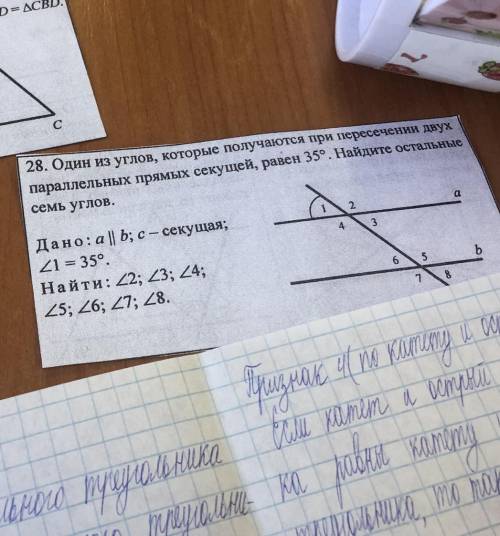 D = ΔCBD.
C
28. Один из углов, которые получаются при пересечении двух
параллельных прямых секущей, равен 35°. Найдите остальные
семь углов.
Дано: a || b; c – секущая;
∠1 = 35°.
Найти: ∠2; ∠3; ∠4;
∠5; ∠6; ∠7; ∠8.
1 2 a
4 3
6 5 b
7 8
Признак 4( по катету и ос
Если катет и острый
ка равны катету
треугольника, то так
льного треугольника
треугольни-